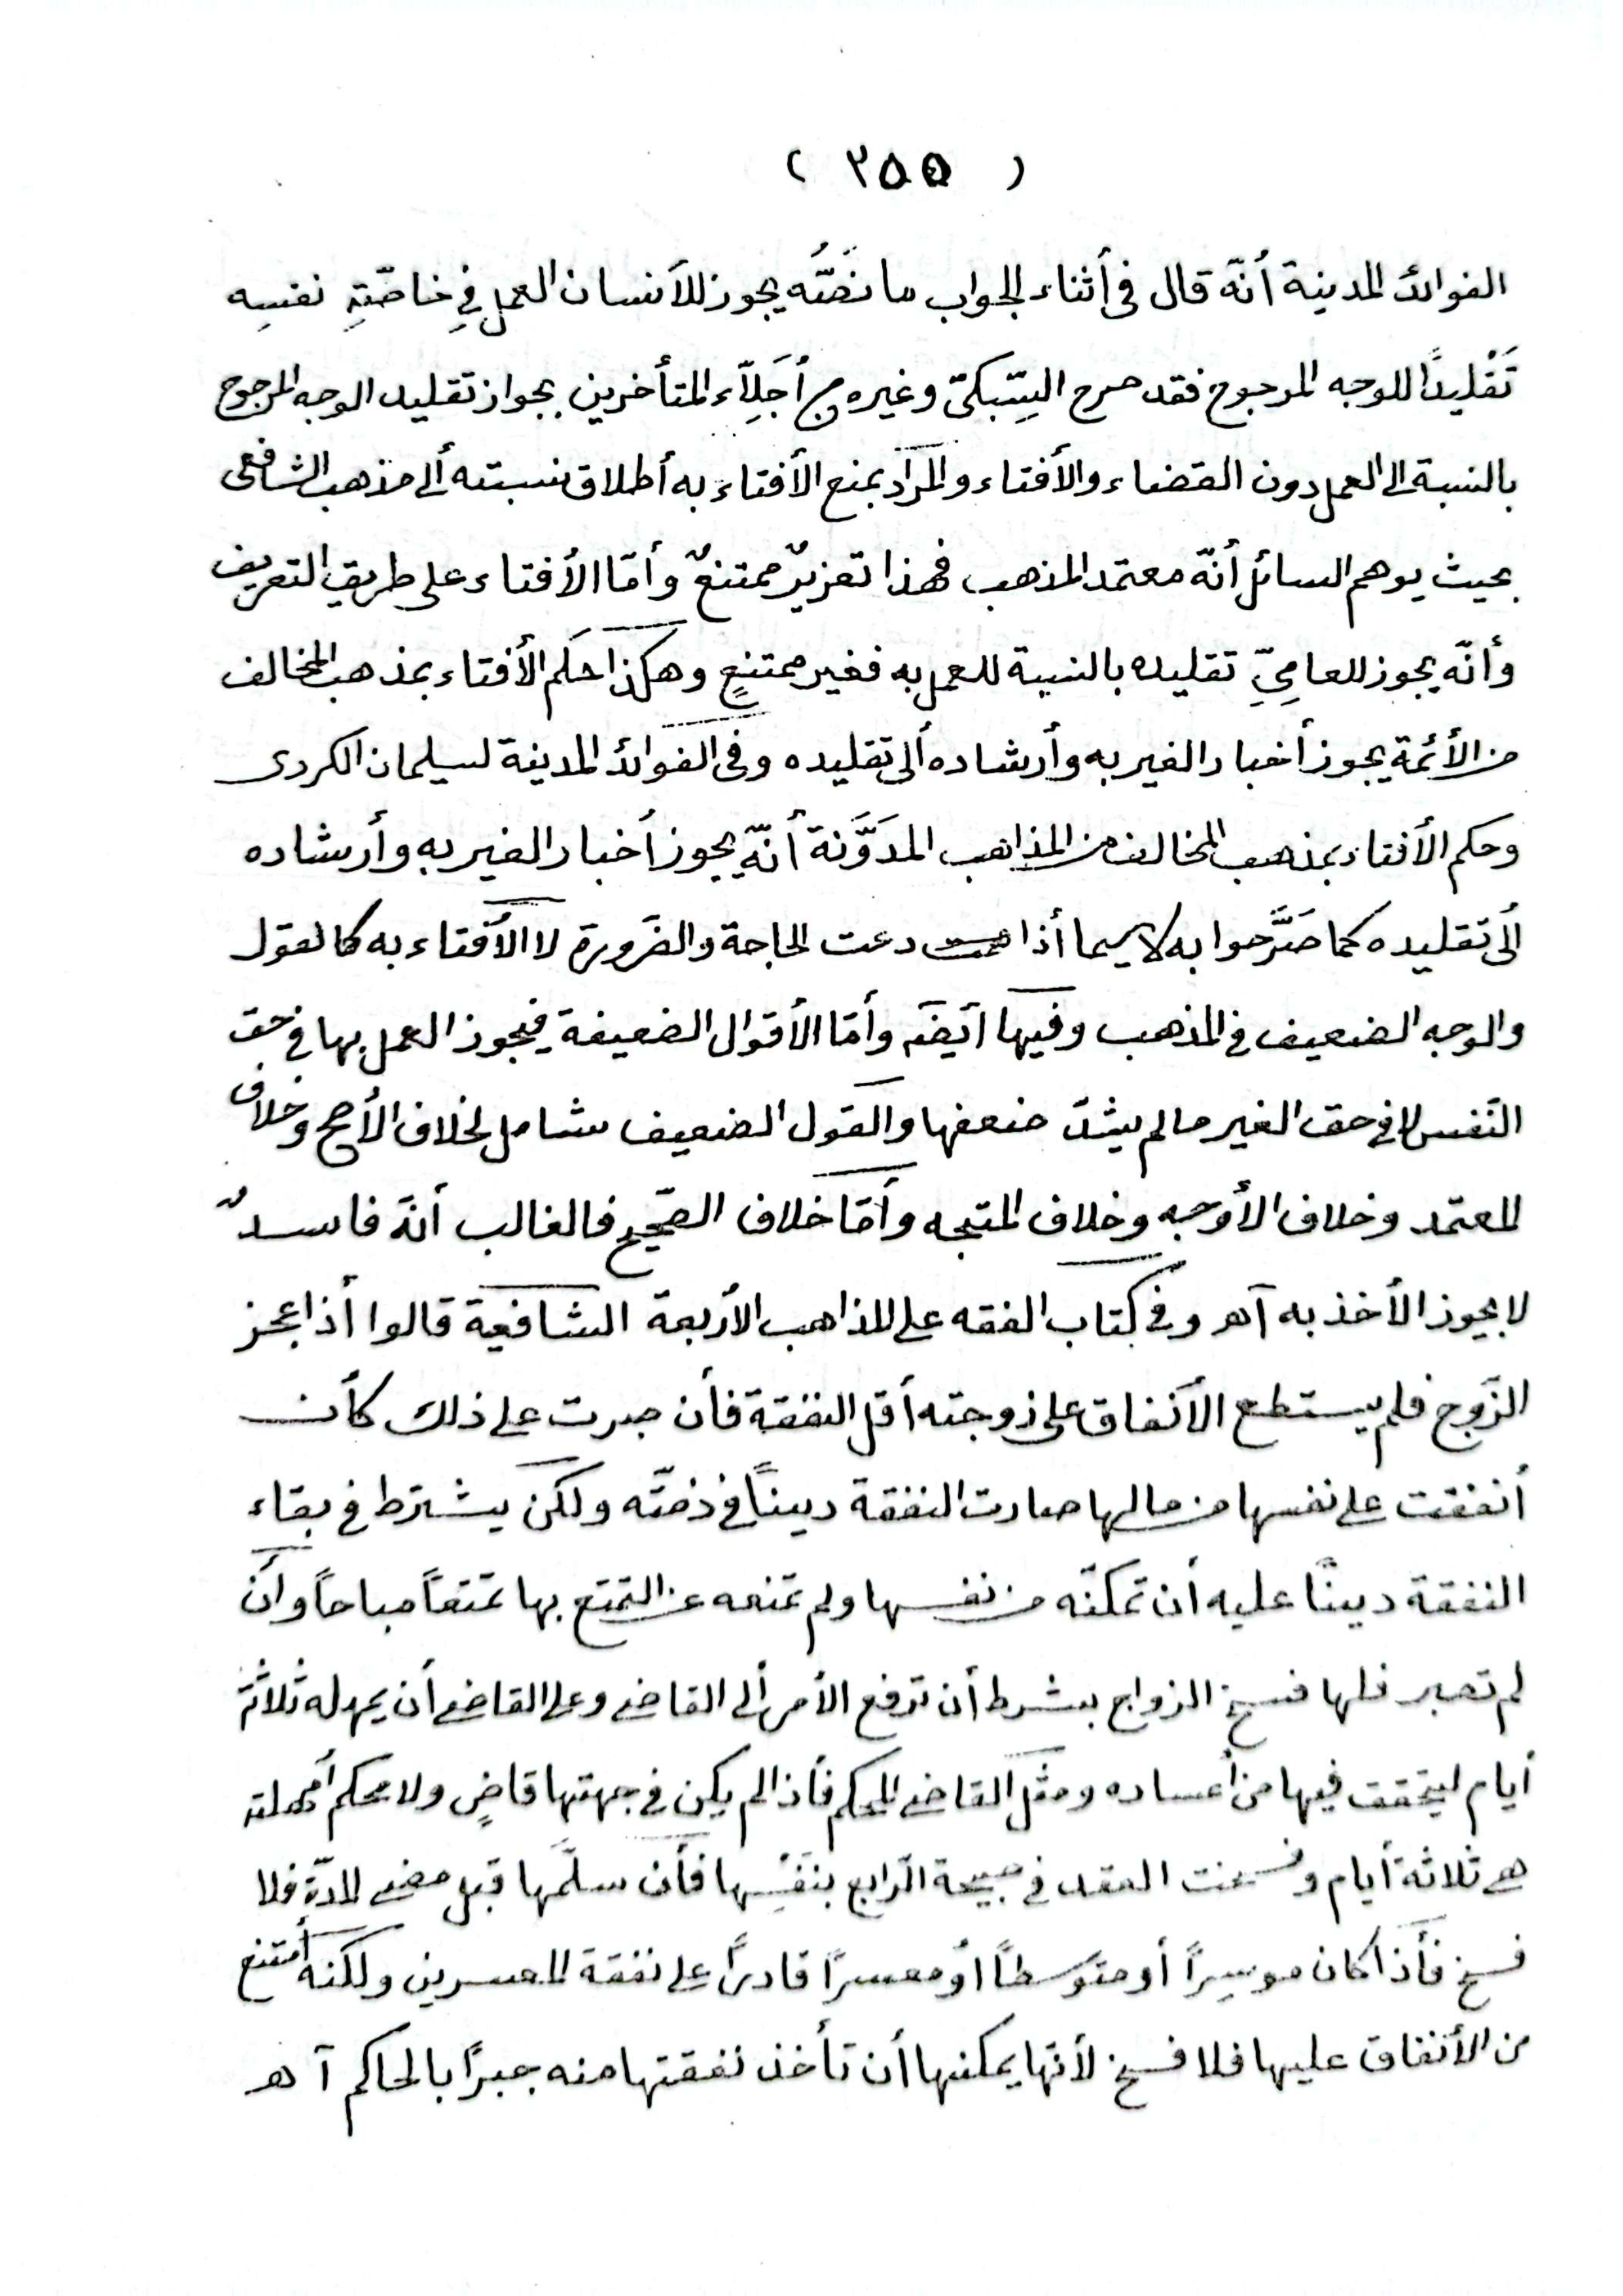 ( ٢٥٥ )
الفوائد المدينة أنّه قال فى أثناء الجواب ما نَصُّه يجوز للأنسان العمل فِي خاصّتِهِ نفسِه
تَقْليدًا للوجه المرجوح فقد صرح السِّبكىّ وغيره من أجَلِّآء المتأخرين بجواز تقليد الوجه المرجوح
بالنسبة الى العمل دون القضاء والأفتاء والمرَاد بمنع الأفتاء به أطلاق نسبته ألى مذهب الشافعى
بحيث يوهم السائل أنّه معتمد المذهب فهذا تعزيرٌ ممتنعٌ وأمّا الأفتاء على طريق التعريف
وأنّه يجوز للعامِيِّ تقليده بالنسبة للعمل به فغير ممتنعٍ وهكذا حكم الأفتاء بمذهب المخالف
من الأئمة يجوز أخبار الغير به وأرشاده ألى تقليده وفى الفوائد المدينة لسليمان الكردى
وحكم الأفتاء بمذهب المخالف من المذاهب المدَوَّنة أنّه يجوز أخبار الغير به وأرشاده
ألى تقليده كما صَرَّحوا به لا سيما أذا دعت الحاجة والضَرورة لا الأفتاء به كالقول
والوجه الضعيف فى المذهب وفيها أيضَه وأمّا الأقوال الضعيفة فيجوز العمل بها فى حق
النَفس لا فى حق الغير ما لم يشدّ ضعفها والقول الضعيف شامل لخلاف الأصح وخلاف
المعتمد وخلاف الأوجه وخلاف المتجه وأمّا خلاف الصّحيح فالغالب أنّه فاسدٌ
لا يجوز الأخذ به آهـ وفى كتاب الفقه على المذاهب الأربعة الشافعية قالوا أذا عجز
الزّوج فلم يستطع الأنفاق على زوجته أقل النفقة فأن صبرت على ذلك كأن
أنفقت على نفسها من مالها صارت النفقة دينًا فى ذمّته ولكن يشترط فى بقاء
النفقة دينًا عليه أن تمكنّه من نفسها ولم تمنعه عن التمتع بها تمتعًا مباحًا وأن
لم تصبر فلها فسخ الزواج بشرط أن ترفع الأمر ألى القاضى وعلى القاضى أن يمهله ثلاثة
أيام ليتحقق فيها من أعساره ومثل القاضى المحكم فأذا لم يكن فى جهتها قاضٍ ولا محكم أمهلته
هى ثلاثة أيام وفسخت العقد فى صبيحة الرّابع بنفسِها فأن سلّمها قبل مضى المدّة فلا
فسخ فأذا كان موسِرًا أو متوَسطًا أو معسرًا قادرًا على نفقة المعسرين ولكنه أمتنع
من الأنفاق عليها فلا فسخ لأنّها يمكنها أن تأخذ نفقتها منه جبرًا بالحاكم آ هـ